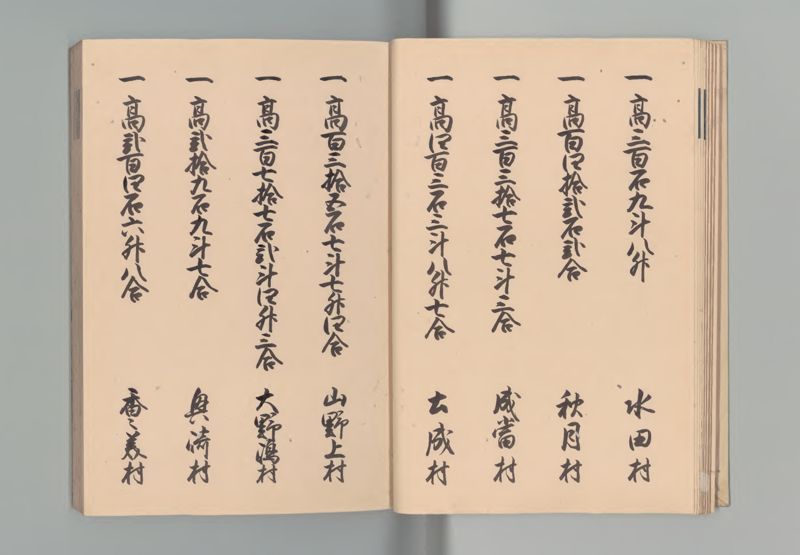 一 高三百石九斗八升 水田村
一 高百四拾弐石弐合 秋月村
一 高三百三拾七石七斗三合 成當村
一 高四百三石三斗八升七合 吉成村
一 高百三拾五石七斗七升四合 山野上村
一 高三百七拾七石弐斗四升三合 大野嶋村
一 高弐拾九石九斗七合 村
一 高弐百四石六升八合 香美村